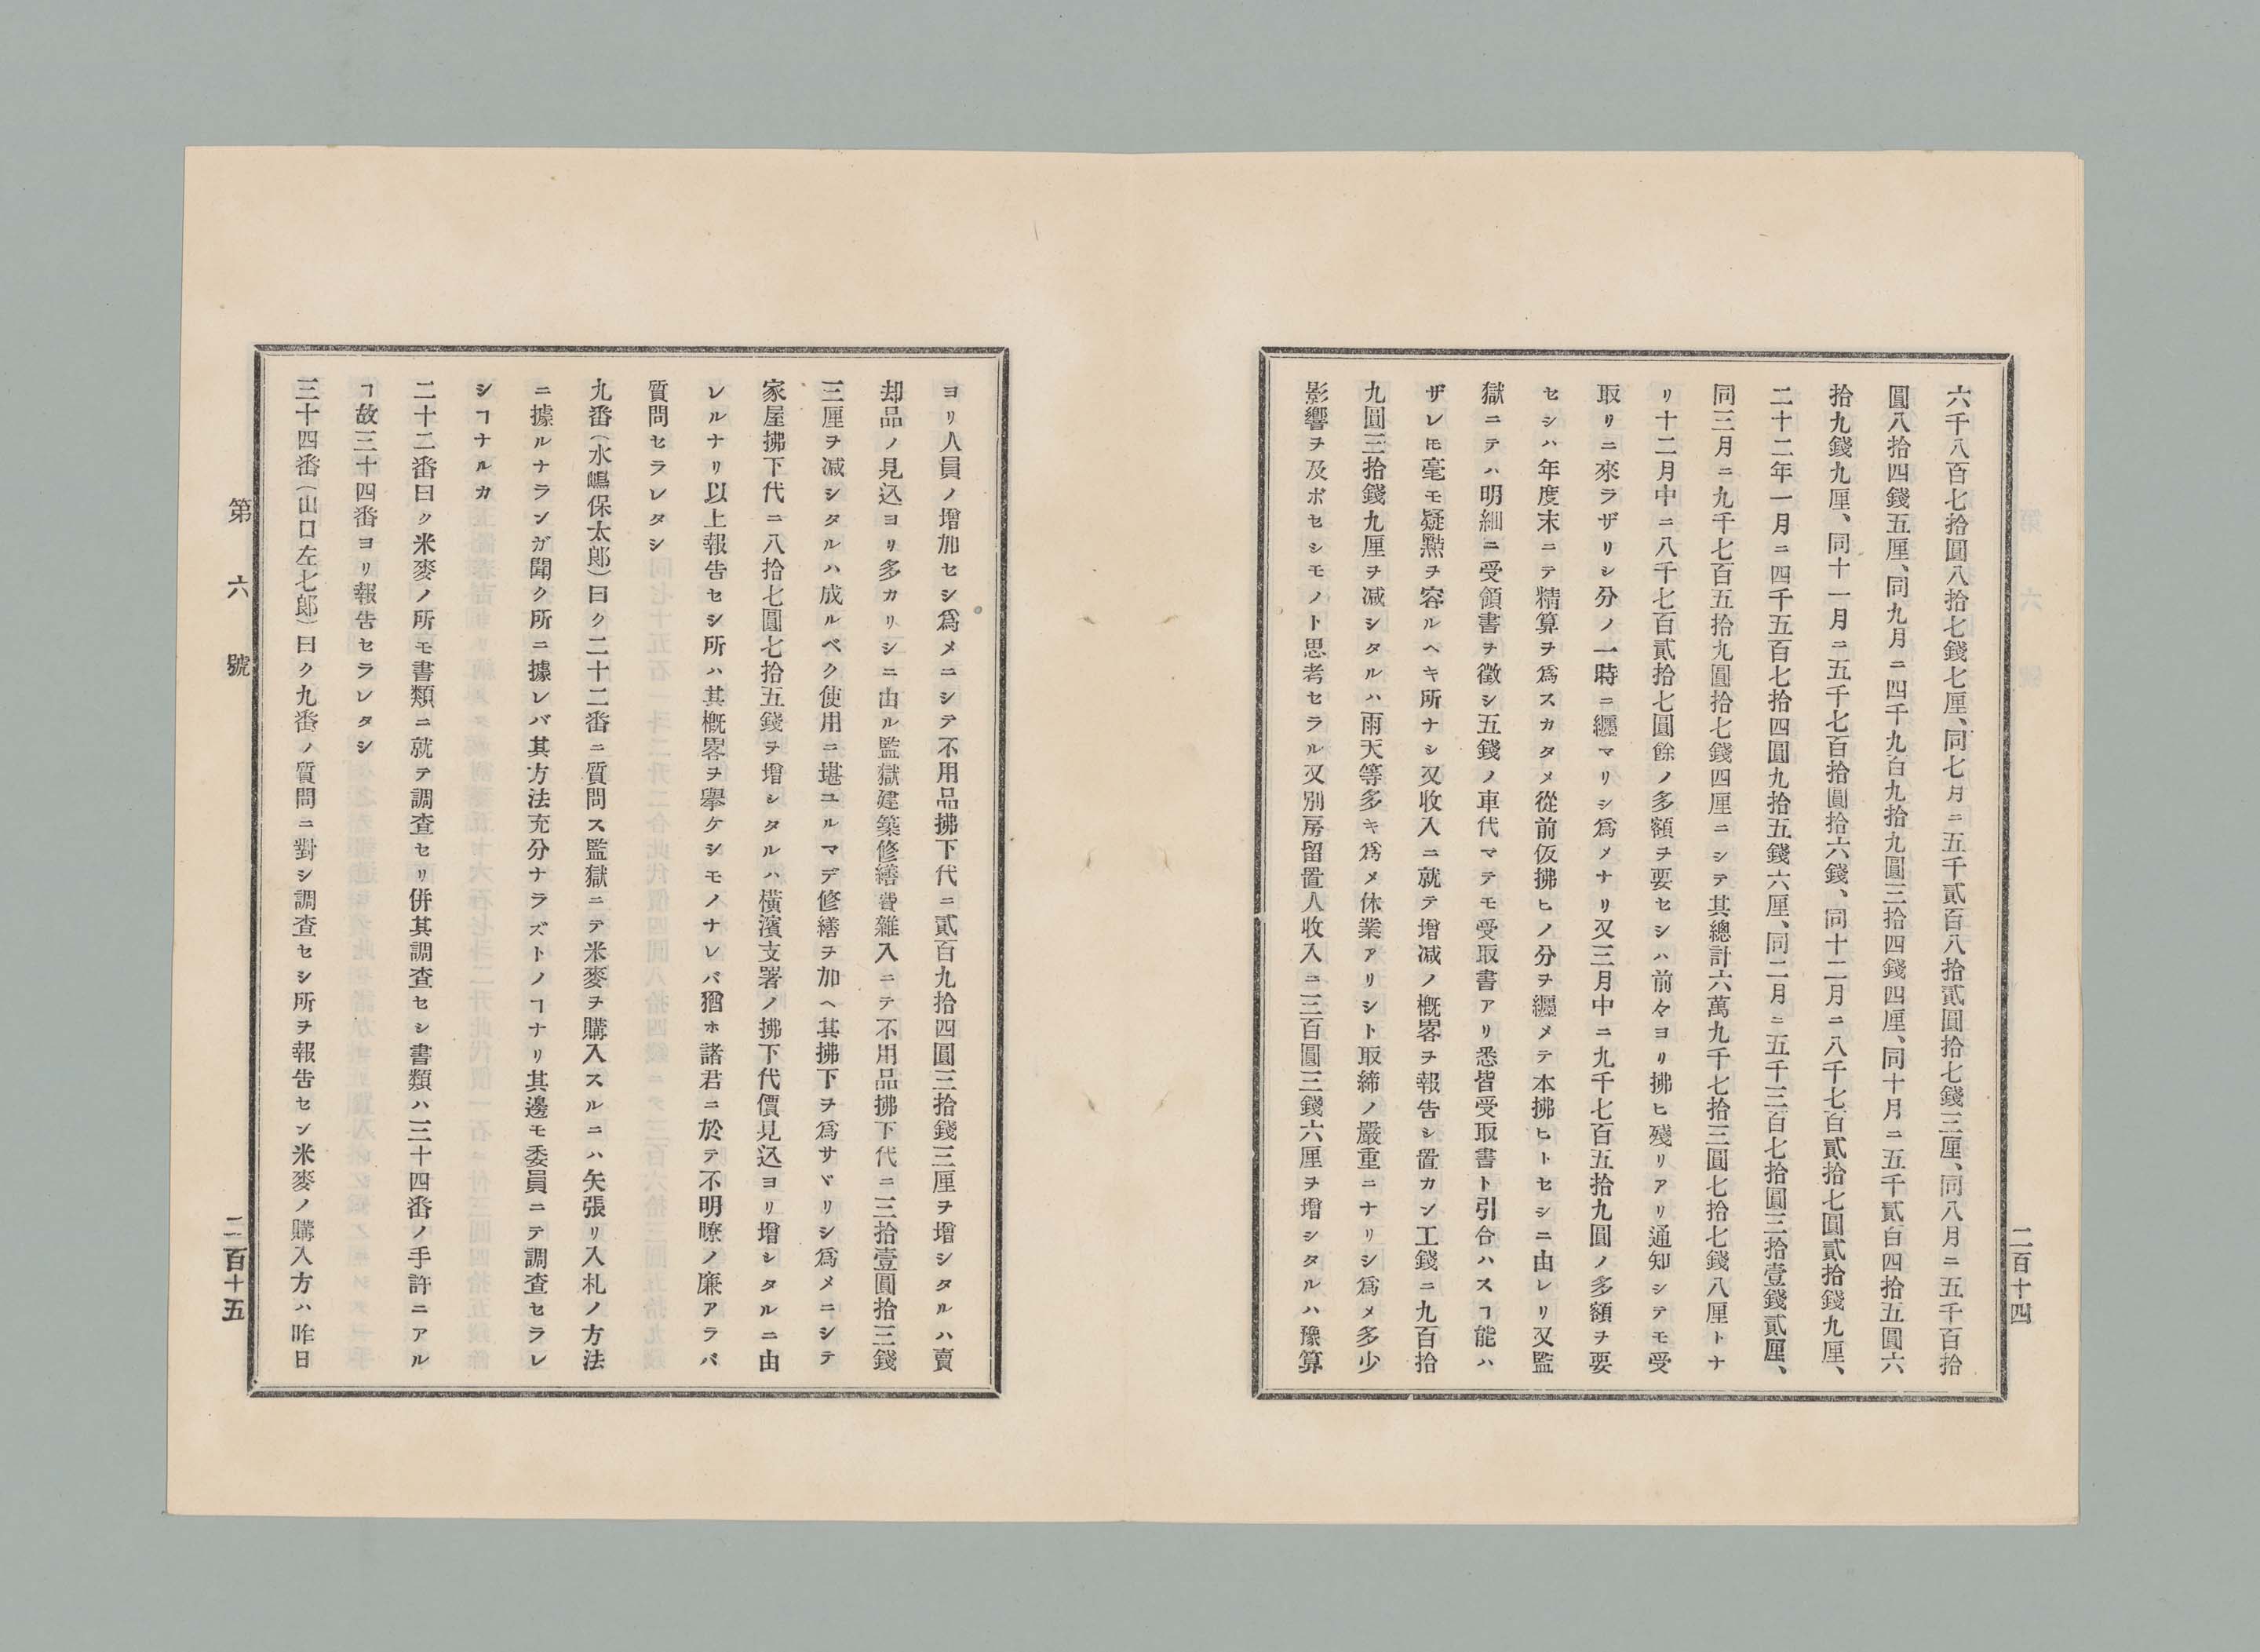 二百十四
六千八百七拾圓八拾七錢七厘、同七月ニ五千貳百八拾貳圓拾七錢三厘、同八月ニ五千百拾
圓八拾四錢五厘、同九月ニ四千九百九拾九圓三拾四錢四厘、同十月ニ五千貳百四拾五圓六
拾九錢九厘、同十一月ニ五千七百拾圓拾六錢、同十二月ニ八千七百貳拾七圓貳拾錢九厘、
二十二年一月ニ四千五百七拾四圓九拾五錢六厘、同二月ニ五千三百七拾圓三拾壹錢貳厘、
同三月ニ九千七百五拾九圓拾七錢四厘ニシテ其總計六萬九千七拾三圓七拾七錢八厘トナ
リ十二月中ニ八千七百貳拾七圓餘ノ多額ヲ要セシハ前々ヨリ拂ヒ殘リアリ通知シテモ受
取リニ來ラザリシ分ノ一時ニ纒マリシ爲メナリ又三月中ニ九千七百五拾九圓ノ多額ヲ要
セシハ年度末ニテ精算ヲ爲スカタメ從前仮拂ヒノ分ヲ纒メテ本拂ヒトセシニ由レリ又監
獄ニテハ明細ニ受領書ヲ徵シ五錢ノ車代マテモ受取書アリ悉皆受取書ト引合ハスヿ能ハ
ザレ𪜈毫モ疑點ヲ容ルヘキ所ナシ又收入ニ就テ增减ノ概畧ヲ報告シ置カン工錢ニ九百拾
九圓三拾錢九厘ヲ减シタルハ雨天等多キ爲メ休業アリシト取締ノ嚴重ニナリシ爲メ多少
影響ヲ及ボセシモノト思考セラル又別房留置人收入ニ三百圓三錢六厘ヲ增シタルハ豫算
ヨリ人員ノ增加セシ爲メニシテ不用品拂下代ニ貳百九拾四圓三拾錢三厘ヲ增シタルハ賣
却品ノ見込ヨリ多カリシニ由ル監獄建築修繕費雜入ニテ不用品拂下代ニ三拾壹圓拾三錢
三厘ヲ减シタルハ成ルベク使用ニ堪ユルマデ修繕ヲ加ヘ其拂下ヲ爲サヾリシ爲メニシテ
家屋拂下代ニ八拾七圓七拾五錢ヲ增シタルハ橫濱支署ノ拂下代價見込ヨリ增シタルニ由
レルナリ以上報告セシ所ハ其概畧ヲ擧ケシモノナレバ猶ホ諸君ニ於テ不明瞭ノ廉アラバ
質問セラレタシ
九番（水嶋保太郎）曰ク二十二番ニ質問ス監獄ニテ米麥ヲ購入スルニハ矢張リ入札ノ方法
ニ據ルナランガ聞ク所ニ據レバ其方法充分ナラズトノヿナリ其邊モ委員ニテ調査セラレ
シヿナルカ
二十二番曰ク米麥ノ所モ書類ニ就テ調查セリ併其調查セシ書類ハ三十四番ノ手許ニアル
ヿ故三十四番ヨリ報告セラレタシ
三十四番（山口左七郎）曰ク九番ノ質問ニ對シ調查セシ所ヲ報告セン米麥ノ購入方ハ昨日
第六號
二百十五